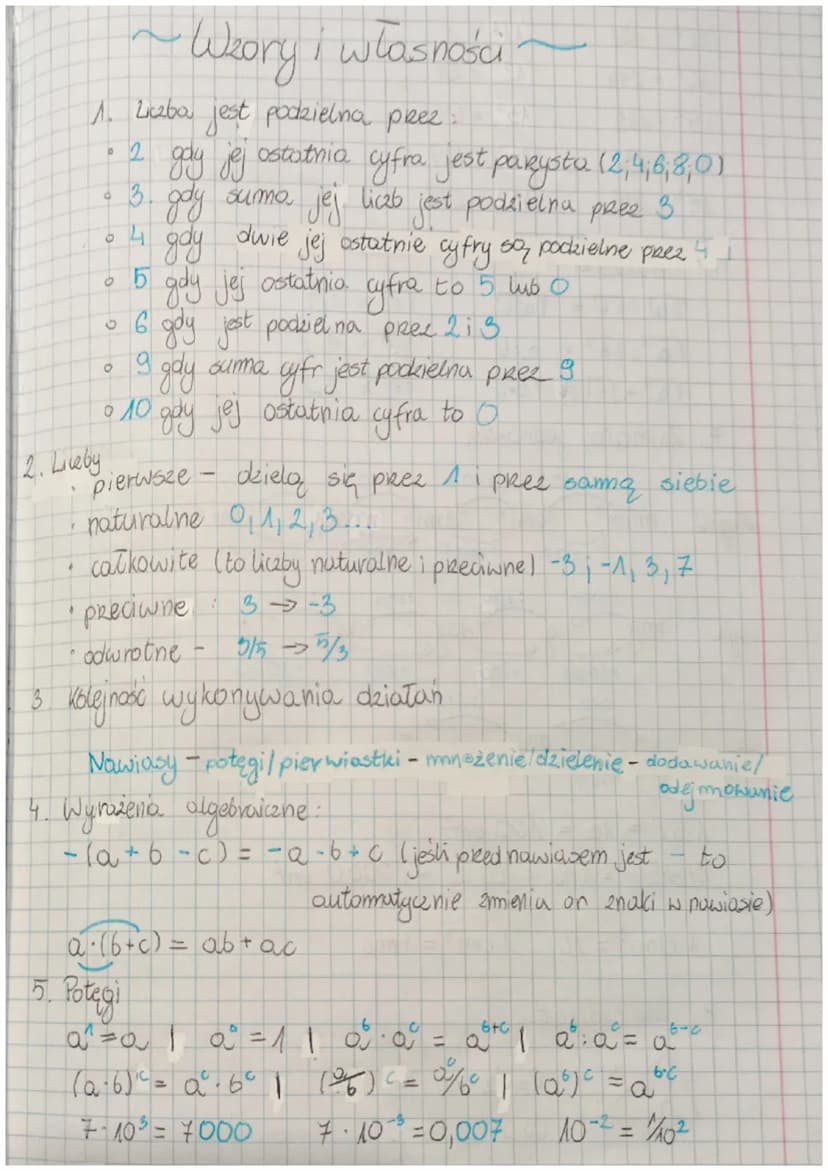 ~ Wzory i własności ~
1. Liczba jest podzielna przez:
• 2 gdy jej ostatnia cyfra jest parzysta (2;4;6;8;0)
• 3. gdy suma jej liczb jest podzielna przez 3
• 4 gdy dwie jej ostatnie cyfry są podzielne przez 4
• 5 gdy jej ostatnia cyfra to 5 lub 0
• 6 gdy jest podzielna przez 2 i 3
• 9 gdy suma cyfr jest podzielna przez 9
• 10 gdy jej ostatnia cyfra to 0
2. Liczby
• pierwsze - dzielą się przez 1 i przez samą siebie
• naturalne 0, 1, 2, 3...
• całkowite (to liczby naturalne i przeciwne) -3; -1, 3, 7
• przeciwne : 3 → -3
• odwrotne - 3/5 → 5/3
3 Kolejność wykonywania działań
Nawiasy - potęgi/pierwiastki - mnożenie/dzielenie - dodawanie/
odejmowanie
4. Wyrażenia algebraiczne:
-(a+b-c) = -a-b+c (jeśli przed nawiasem jest - to
automatycznie zmienia on znaki w nawiasie)
a·(b+c) = ab + ac
5. Potęgi
a¹ = a | a⁰ = 1 | a^b · a^c = a^(b+c) | a^b : a^c = a^(b-c)
(a·b)^c = a^c · b^c | (a/b)^c = a^c/b^c | (a^b)^c = a^(b·c)
7·10³ = 7000 7·10⁻³ = 0,007 10⁻² = 1/10²